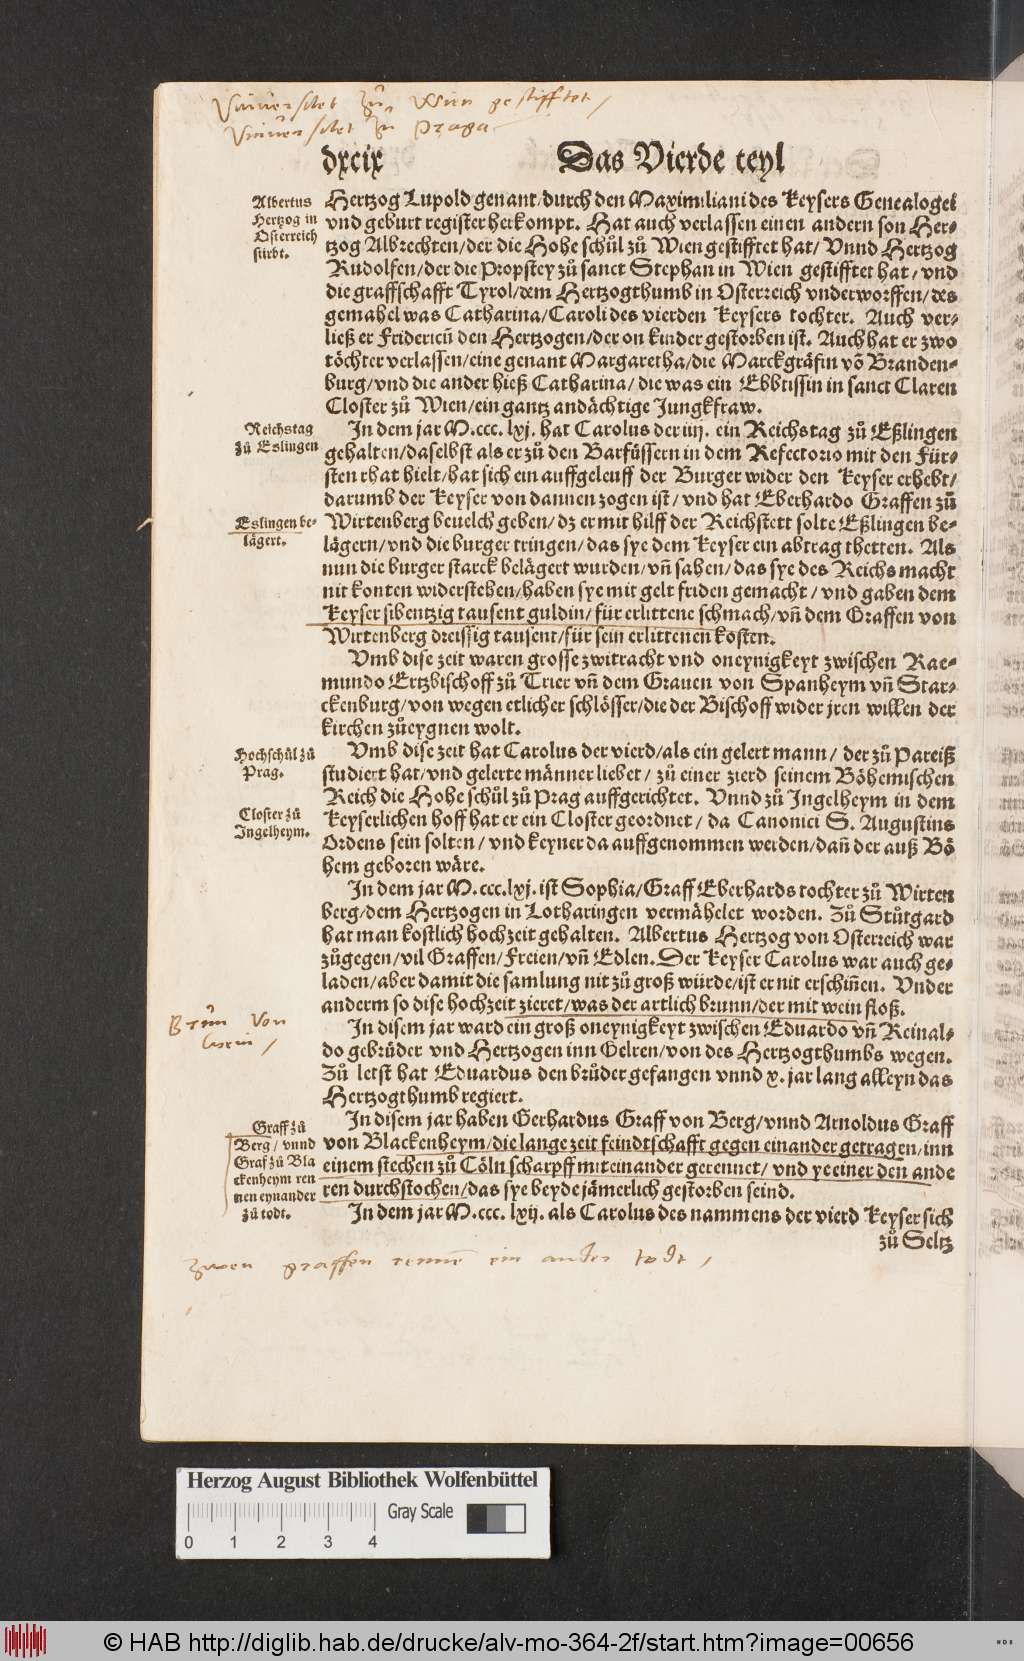 Vniuersitet zů Wien gestifftet /
Vniuersitet zů Praga
dxcix
Das Vierde teyl
Albertus
Hertzog in
Osterreich
stirbt.
Hertzog Lupold genant / durch den Maximiliani des Keysers Genealogei
vnd geburt register herkompt. Hat auch verlassen einen andern son Her-
tzog Albrechten / der die Hohe schůl zů Wien gestifftet hat / Vnnd Hertzog
Rudolfen / der die Propstey zů sanct Stephan in Wien gestifftet hat / vnd
die graffschafft Tyrol / dem Hertzogthumb in Osterreich vnderworffen / des
gemahel was Catharina / Caroli des vierden Keysers tochter. Auch ver-
ließ er Fridericū den Hertzogen / der on kinder gestorben ist. Auch hat er zwo
töchter verlassen / eine genant Margaretha / die Marckgräfin vō Branden-
burg / vnd die ander hieß Catharina / die was ein Ebbtissin in sanct Claren
Closter zů Wien / ein gantz andächtige Jungkfraw.
Reichstag
zů Eslingen
In dem jar M. ccc. lxj. hat Carolus der iiij. ein Reichstag zů Eßlingen
gehalten / daselbst als er zů den Barfüssern in dem Refectorio mit den Für-
sten rhat hielt / hat sich ein auffgeleuff der Burger wider den Keyser erhebt /
darumb der Keyser von dannen zogen ist / vnd hat Eberhardo Graffen zů
Eslingen be-
lägert.
Wirtenberg beuelch geben / dz er mit hilff der Reichstett solte Eßlingen be-
lägern / vnd die burger tringen / das sye dem Keyser ein abtrag thetten. Als
nun die burger starck belägert wurden / vñ sahen / das sye des Reichs macht
nit konten widerstehen / haben sye mit gelt friden gemacht / vnd gaben dem
Keyser sibentzig tausent guldin / für erlittene schmach / vñ dem Graffen von
Wirtenberg dreissig tausent / für sein erlittenen kosten.
Vmb dise zeit waren grosse zwitracht vnd oneynigkeyt zwischen Rae-
mundo Ertzbischoff zů Trier vñ dem Grauen von Spanheym vñ Star-
ckenburg / von wegen etlicher schlösser / die der Bischoff wider jren willen der
kirchen zůeygnen wolt.
Hochschůl zů
Prag.
Vmb dise zeit hat Carolus der vierd / als ein gelert mann / der zů Pareiß
studiert hat / vnd gelerte männer liebet / zů einer zierd seinem Böhemischen
Reich die Hohe schůl zů Prag auffgerichtet. Vnnd zů Ingelheym in dem
Closter zů
Ingelheym.
Keyserlichen hoff hat er ein Closter geordnet / da Canonici S. Augustins
Ordens sein solten / vnd keyner da auffgenommen werden / dañ der auß Bö
hem geboren wäre.
In dem jar M. ccc. lxj. ist Sophia / Graff Eberhards tochter zů Wirten
berg / dem Hertzogen in Lotharingen vermähelet worden. Zů Stůtgard
hat man kostlich hochzeit gehalten. Albertus Hertzog von Osterreich war
zůgegen / vil Graffen / Freien / vñ Edlen. Der Keyser Carolus war auch ge-
laden / aber damit die samlung nit zů groß würde / ist er nit erschiñen. Vnder
anderm so dise hochzeit zieret / was der artlich brunn / der mit wein floß.
Brūn Von
Wein /
In disem jar ward ein groß oneynigkeyt zwischen Eduardo vñ Reinal-
do gebrüder vnd Hertzogen inn Gelren / von des Hertzogthumbs wegen.
Zů letst hat Eduardus den brůder gefangen vnnd x. jar lang alleyn das
Hertzogthumb regiert.
Graff zů
Berg / vnnd
Graf zů Bla
ckenheym ren
nen eynander
zů todt.
In disem jar haben Gerhardus Graff von Berg / vnnd Arnoldus Graff
von Blackenheym / die lange zeit feindtschafft gegen einander getragen / inn
einem stechen zů Cöln scharpff mit einander gerennet / vnd ye einer den ande
ren durchstochen / das sye beyde jämerlich gestorben seind.
In dem jar M. ccc. lxij. als Carolus des nammens der vierd Keyser sich
zů Seltz
Zwen graffen rennē ein ander todt /
Herzog August Bibliothek Wolfenbüttel
Gray Scale
0 1 2 3 4
© HAB http://diglib.hab.de/drucke/alv-mo-364-2f/start.htm?image=00656